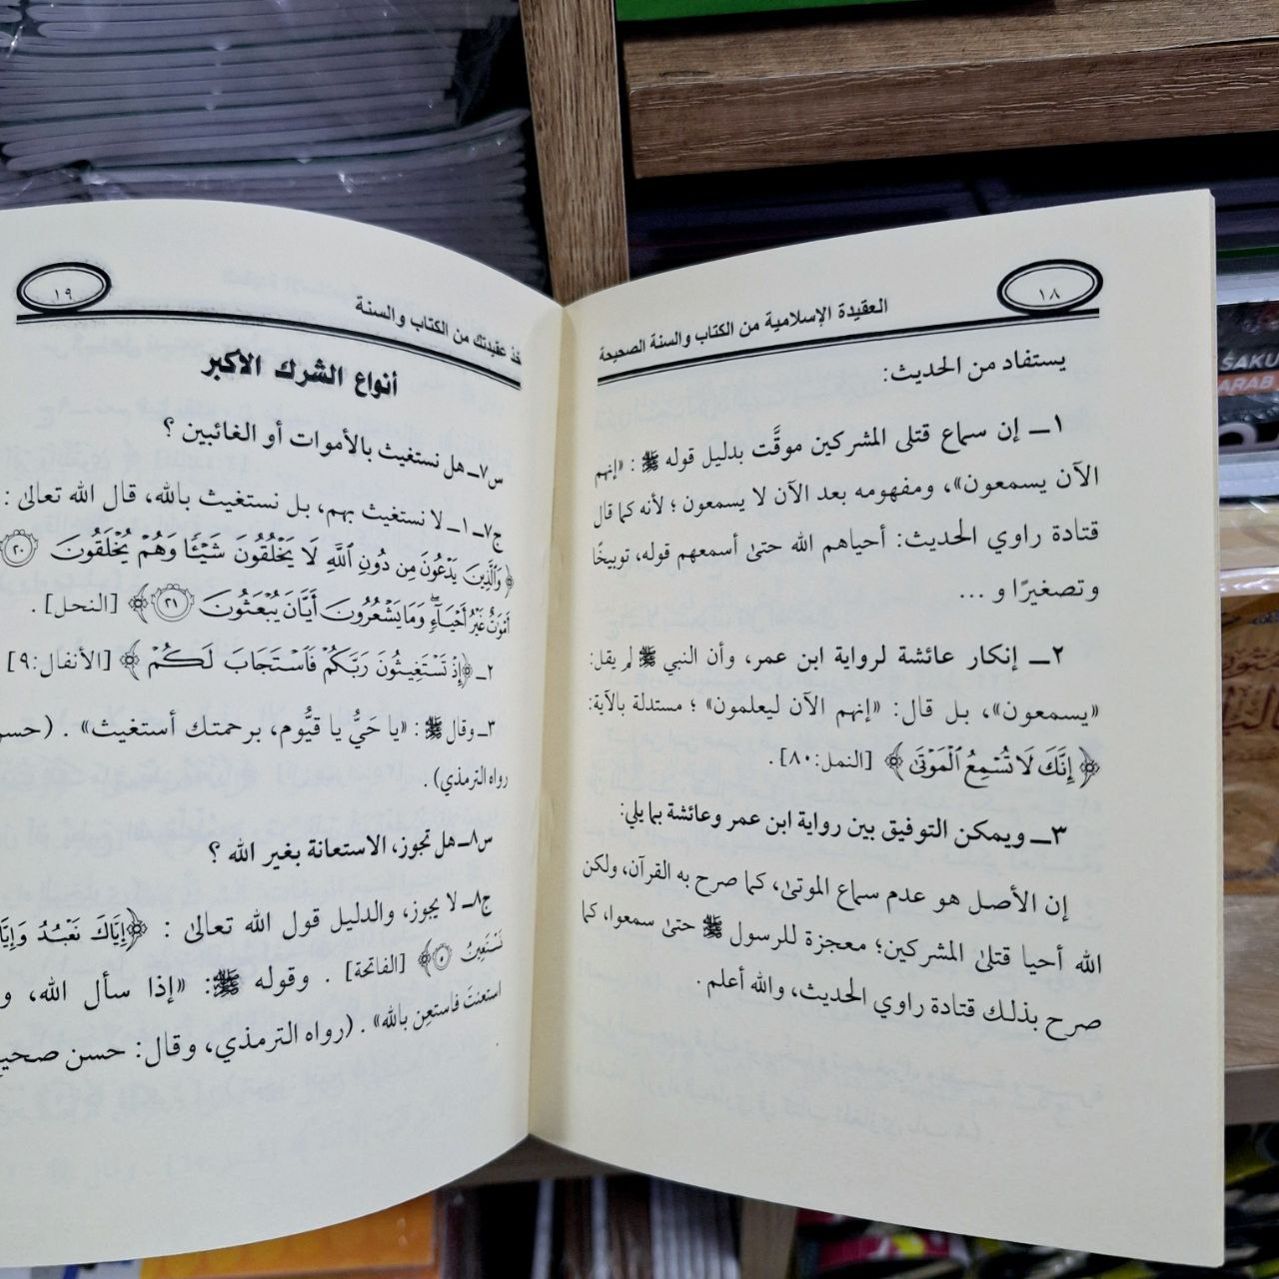 ١٨
العقيدة الإسلامية من الكتاب والسنة الصحيحة
يستفاد من الحديث:
١ــ إن سماع قتلى المشركين موقَّت بدليل قوله ﷺ: «إنهم
الآن يسمعون»، ومفهومه بعد الآن لا يسمعون؛ لأنه كما قال
قتادة راوي الحديث: أحياهم الله حتىٰ أسمعهم قوله، توبيخًا
وتصغيرًا و ...
٢ــ إنكار عائشة لرواية ابن عمر، وأن النبي ﷺ لم يقل:
«يسمعون»، بل قال: «إنهم الآن ليعلمون»؛ مستدلة بالآية:
﴿إِنَّكَ لَا تُسْمِعُ ٱلْمَوْتَىٰ﴾ [النمل:٨٠].
٣ــ ويمكن التوفيق بين رواية ابن عمر وعائشة بما يلي:
إن الأصل هو عدم سماع الموتىٰ، كما صرح به القرآن، ولكن
الله أحيا قتلىٰ المشركين؛ معجزة للرسول ﷺ حتىٰ سمعوا، كما
صرح بذلك قتادة راوي الحديث، والله أعلم.
١٩
خذ عقيدتك من الكتاب والسنة
أنواع الشرك الأكبر
س٧ــ هل نستغيث بالأموات أو الغائبين؟
ج٧ــ١ــ لا نستغيث بهم، بل نستغيث بالله، قال الله تعالىٰ:
﴿وَٱلَّذِينَ يَدْعُونَ مِن دُونِ ٱللَّهِ لَا يَخْلُقُونَ شَيْـًٔا وَهُمْ يُخْلَقُونَ ٢٠
أَمْوَٰتٌ غَيْرُ أَحْيَآءٍۖ وَمَا يَشْعُرُونَ أَيَّانَ يُبْعَثُونَ ٢١﴾ [النحل].
٢ــ ﴿إِذْ تَسْتَغِيثُونَ رَبَّكُمْ فَٱسْتَجَابَ لَكُمْ﴾ [الأنفال:٩]
٣ــ وقال ﷺ: «يا حَيُّ يا قيُّوم، برحمتك أستغيث». (حسن
رواه الترمذي).
س٨ــ هل تجوز، الاستعانة بغير الله؟
ج٨ــ لا يجوز، والدليل قول الله تعالىٰ: ﴿إِيَّاكَ نَعْبُدُ وَإِيَّا
نَسْتَعِينُ ٥﴾ [الفاتحة]. وقوله ﷺ: «إذا سأل الله، و
استعنتَ فاستعِن بالله». (رواه الترمذي، وقال: حسن صحيح
SAKU
ARAB